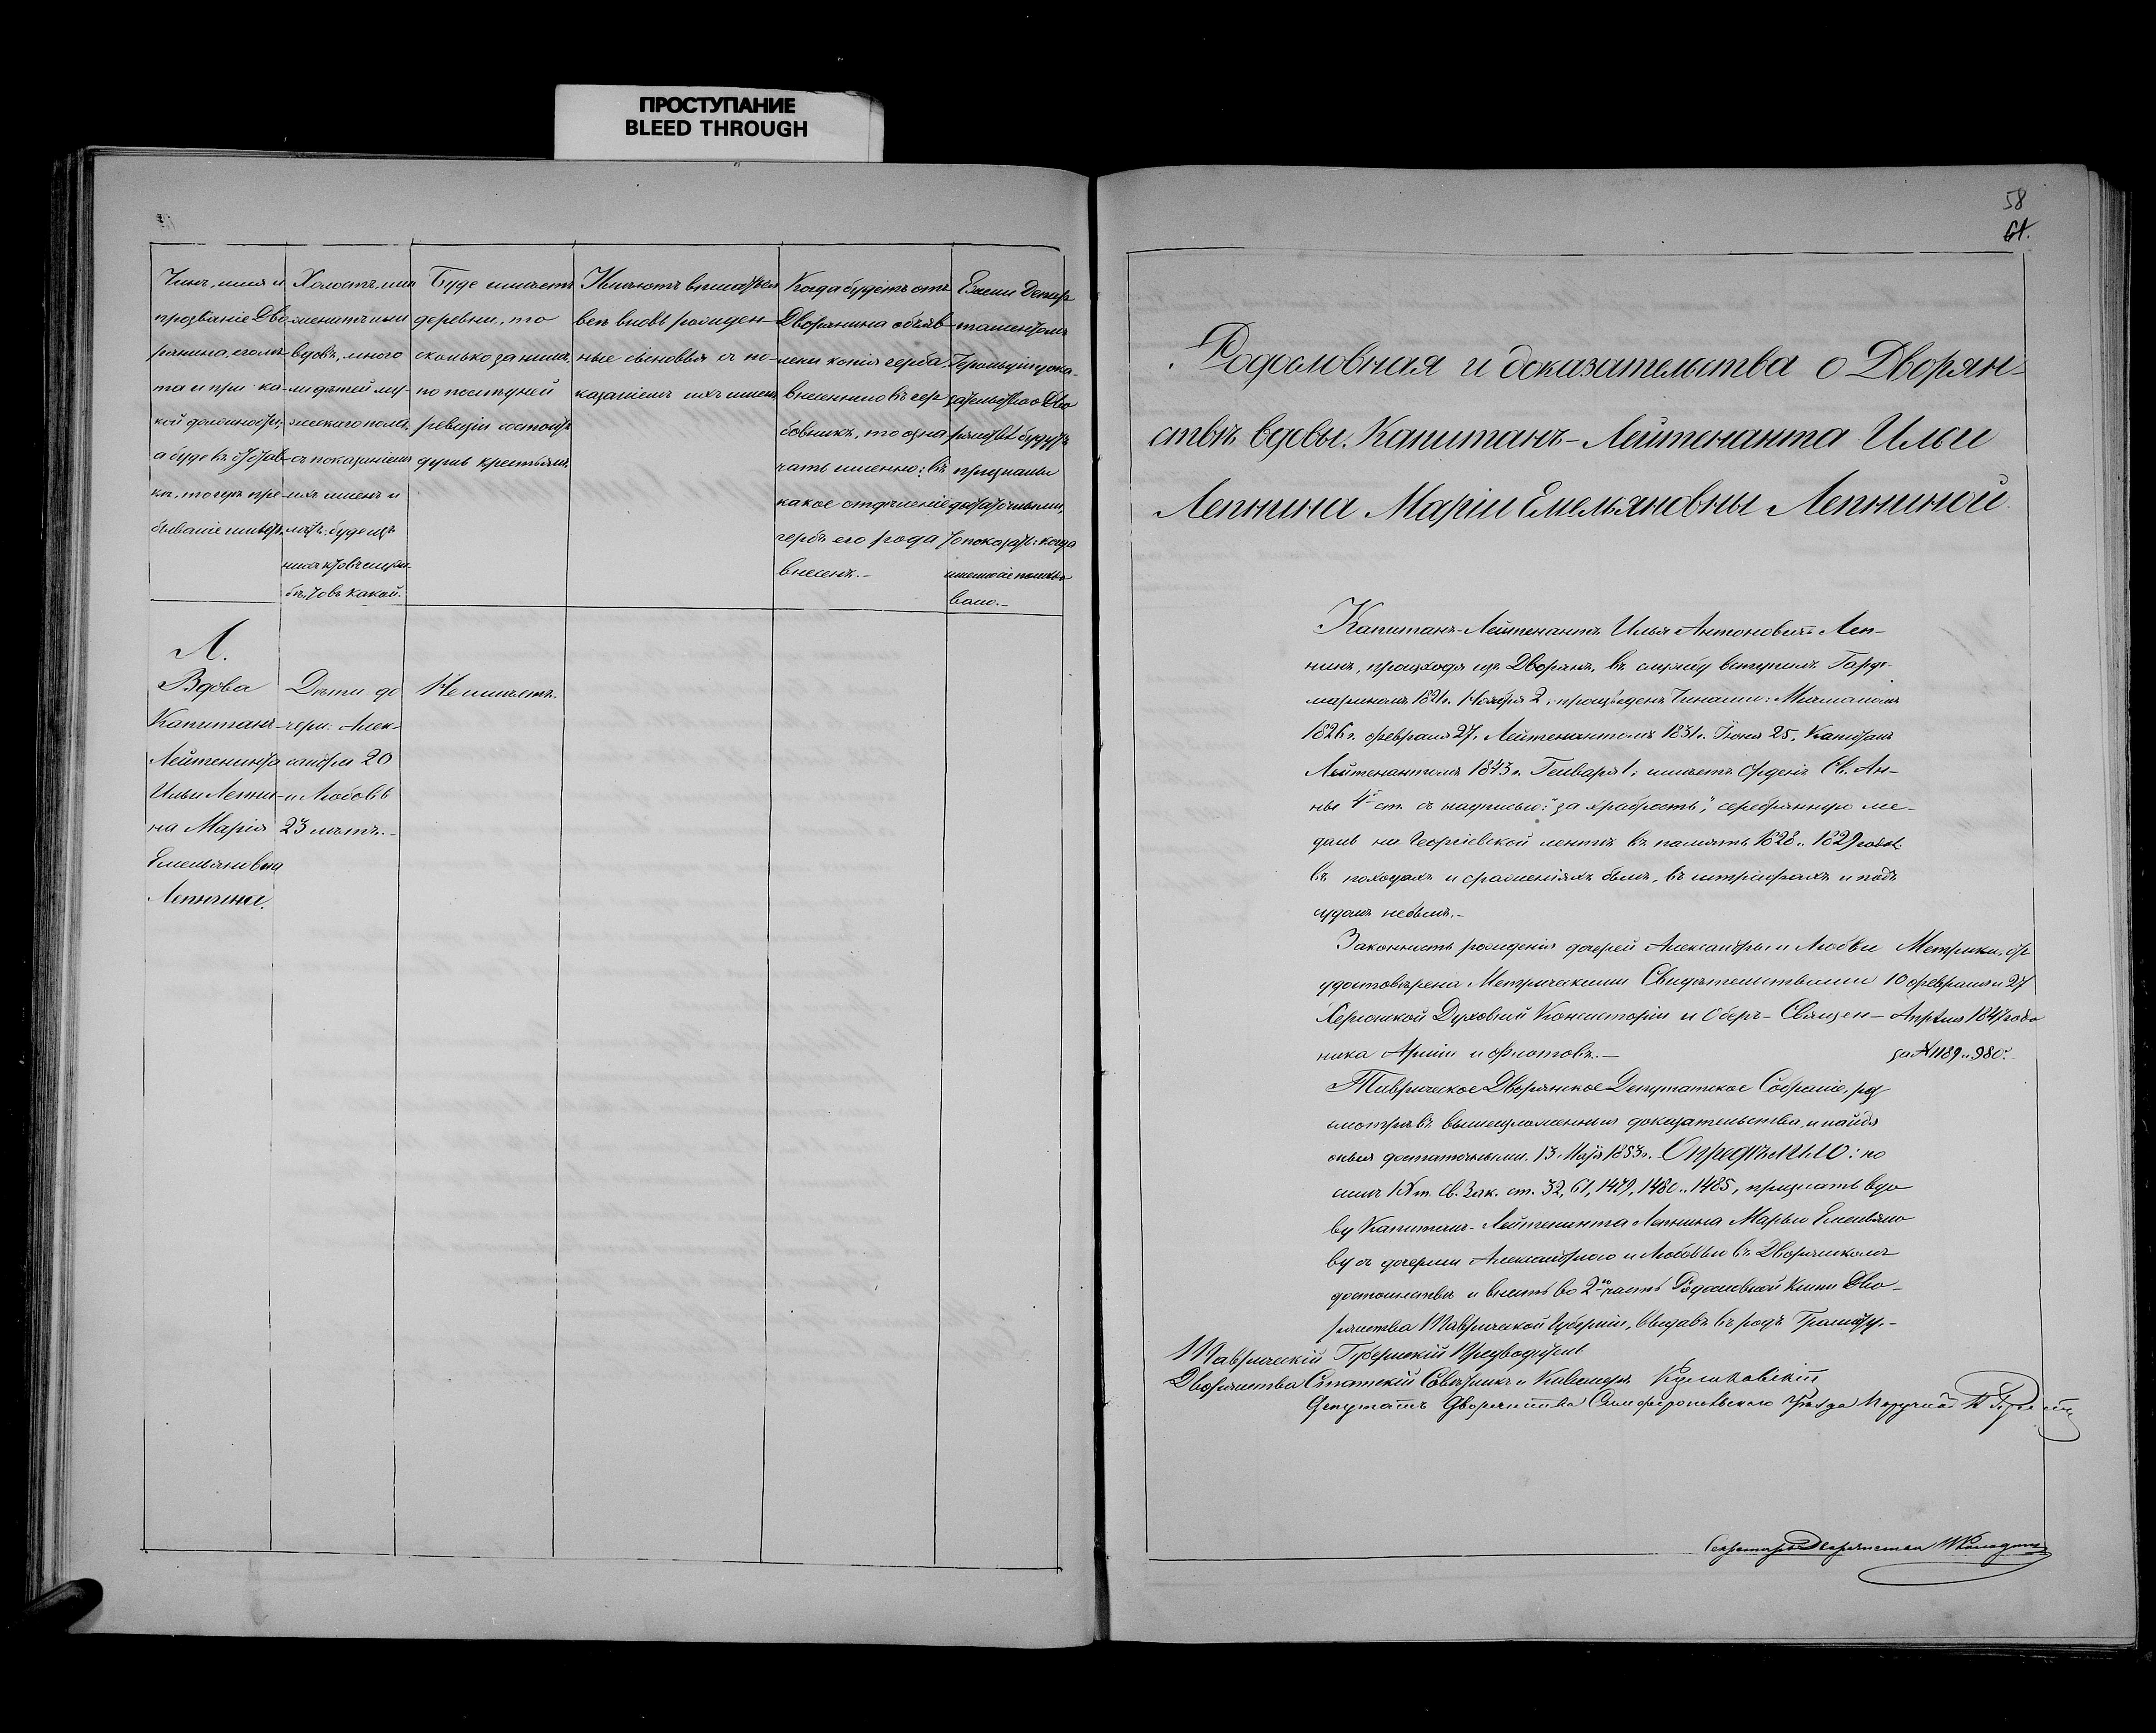 ПРОСТУПАНИЕ
BLEED THROUGH
Чинъ, имя и
прозваніе Дво-
рянина, его лѣ-
та и при ка-
кой должности,
а буде въ отстав-
кѣ, то гдѣ пре-
бываніе имѣетъ.
Холостъ, или
женатъ или
вдовъ, много
ли дѣтей му-
жескаго пола,
съ показаніемъ
ихъ именъ и
лѣтъ; буде изъ
нихъ кто въ служ-
бѣ, то въ какой.
Буде имѣетъ
деревни, то
сколько за нимъ,
по послѣдней
ревизіи состоитъ
душъ крестьянъ.
вновь рожден-
ные сыновья съ по-
казаніемъ ихъ именъ
Когда будетъ отъ
Дворянина объяв-
лена копія герба,
внесеннаго въ гер-
бовникъ, то озна-
чать именно: въ
какое отдѣленіе
гербъ его рода
внесенъ.-
Ежели Депар-
таментомъ
Герольдіи дока-
зательства о Дво-
рянствѣ будутъ
признаны
достаточными,
то показать: когда
именно
Л.
Вдова
Капитанъ-
Лейтенанта
Ильи Лепни-
на Марія
Емельяновна
Лепнина.
Дѣти до-
чери: Алек-
сандра 20
и Любовь
23 лѣтъ.-
Не имѣетъ.
58
61.
Родословная и доказательства о Дворян-
ствѣ вдовы Капитанъ-Лейтенанта Ильи
Лепнина Маріи Емельяновны Лепниной.
Капитанъ-Лейтенантъ Илья Антоновичъ Леп-
нинъ, происходя изъ Дворянъ, въ службу вступилъ Гарде-
мариномъ 1821г. Ноября 2, произведенъ Чинами: Мичманомъ
1826г. февраля 27, Лейтенантомъ 1831г. Іюня 25, Капитанъ
Лейтенантомъ 1843г. Генваря 1; имѣетъ Орденъ Св. Ан-
ны 4й ст. съ надписью: "за храбрость", серебрянную ме-
даль на Георгіевской лентѣ въ память 1828 и 1829 годовъ.
въ походахъ и сраженіяхъ былъ, въ штрафахъ и подъ
судомъ небылъ.-
Законность рожденія дочерей Александры и Любви
удостовѣрена Метрическими Свидѣтельствами
Херсонской Духовной Консисторіи и Оберъ-Священ-
ника Арміи и флотовъ.-
Метрики, отъ
10 февраля и 27
Апрѣля 1847 года
за № 1189 и 980.
Таврическое Дворянское Депутатское Собраніе, раз
смотрѣвъ вышеизложенныя доказательства, и найдя
оныя достаточными, 13 Мая 1853г. Опредѣлило: по
силѣ IX т. Св. Зак. ст. 32, 61, 1479, 1480 и 1485, признать вдо
ву Капитанъ-Лейтенанта Лепнина Марью Емельяно
ву съ дочерьми Александрою и Любовью въ Дворянскомъ
достоинствѣ и внесть во 2ю часть Родословной Книги Дво-
рянства Таврической Губерніи, выдавъ въ родъ Грамоту.-
Таврическій Губернскій Предводитель
Дворянства Статскій Совѣтникъ и Кавалеръ
Депутатъ Дворянства Симферопольскаго Уѣзда Поручикъ
Секретарь Дворянства